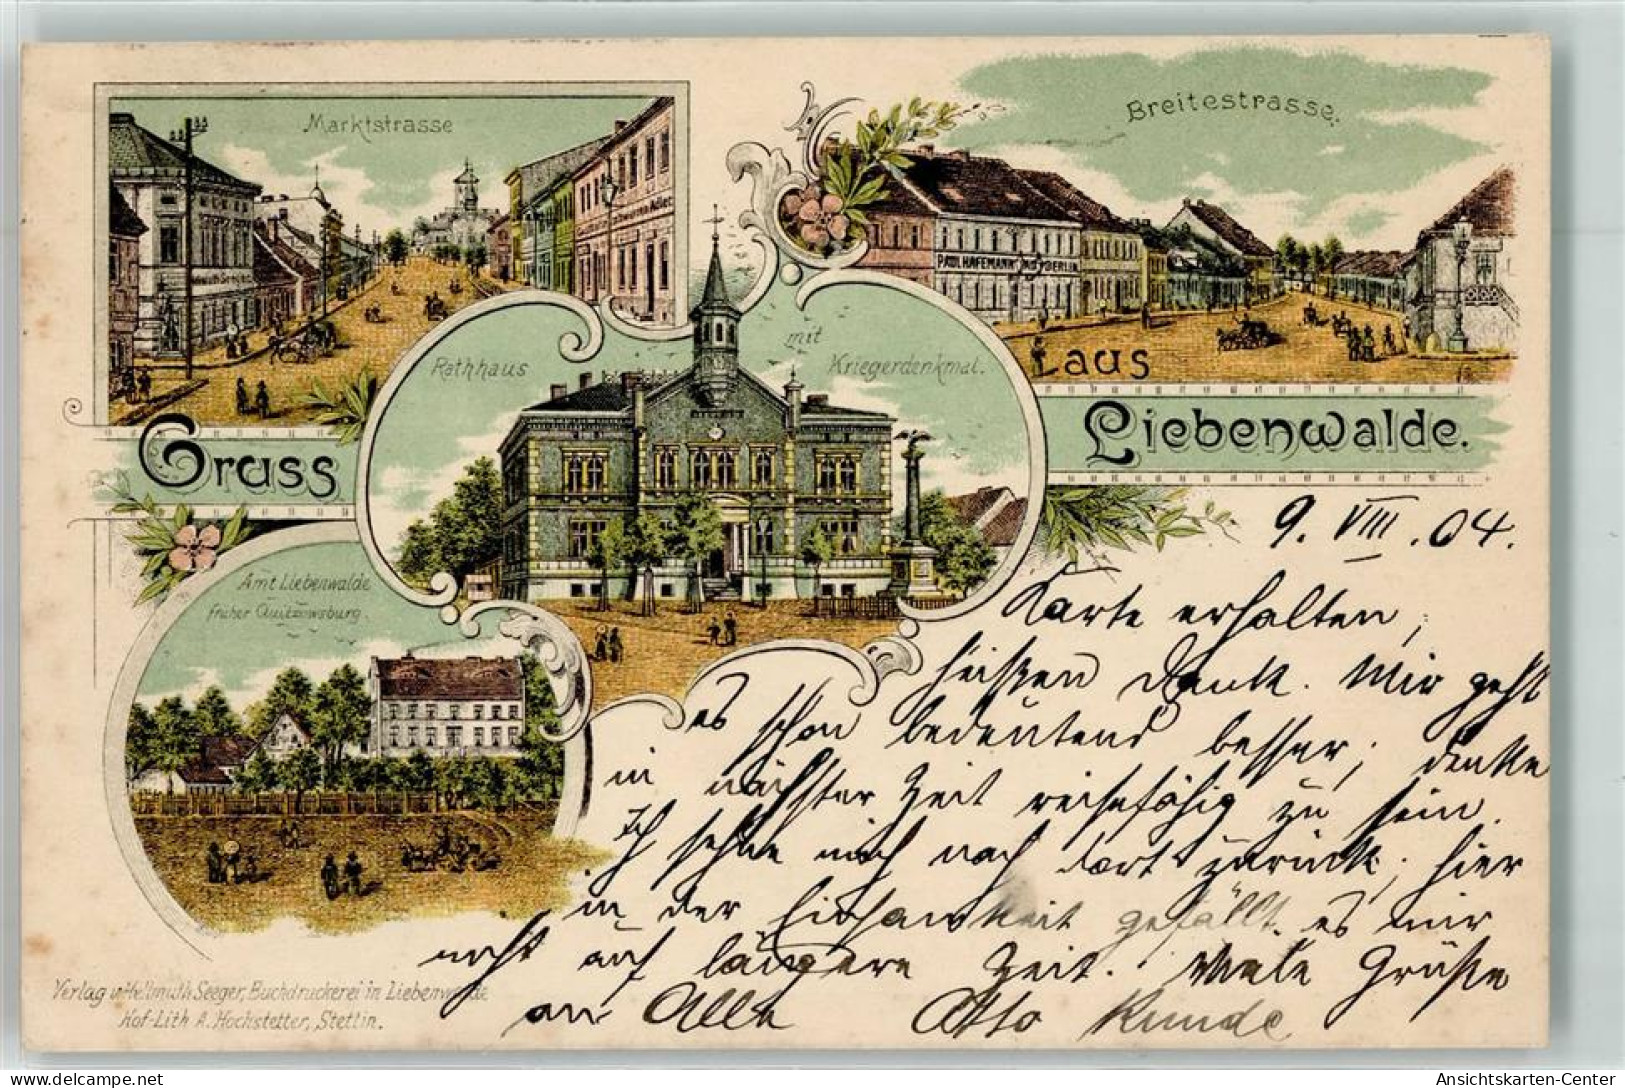 Marktstrasse
Breitestrasse.
PAUL HAFEMANN
BERLIN
Rathhaus
mit
Kriegerdenkmal.
Gruss
aus
Liebenwalde.
Amt Liebenwalde
früher Quitzowsburg.
9. VIII. 04.
Karte erhalten,
heißen Dank. Mir geht
es schon bedeutend besser, denke
in nächster Zeit reisefähig zu sein.
Ich sehne mich nach dort zurück, hier
in der Einsamkeit gefällt es mir
nicht auf längere Zeit. Viele Grüße
an Alle Otto Kunde
Verlag v. Hellmuth Seeger, Buchdruckerei in Liebenwalde
Hof-Lith A. Hochstetter, Stettin.
Ansichtskarten-Center